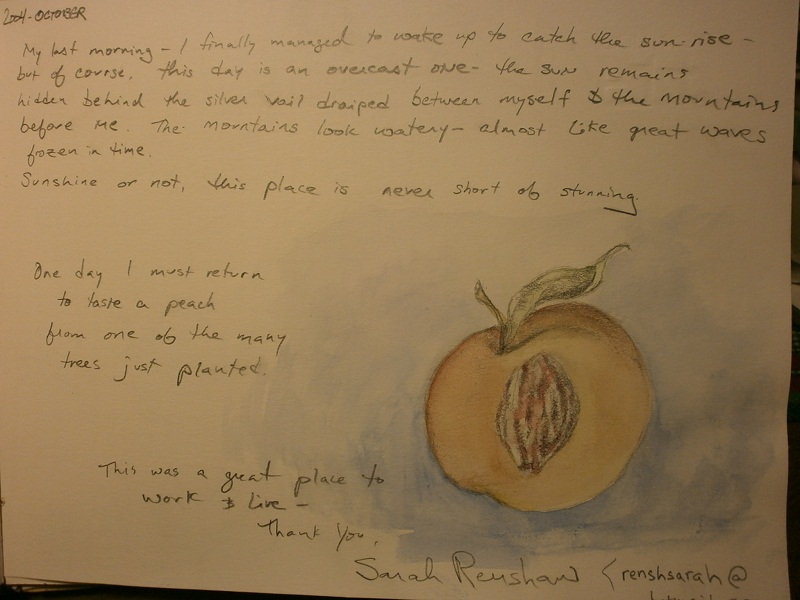 2004-OCTOBER
My last morning - I finally managed to wake up to catch the sun-rise -
but of course, this day is an overcast one - the sun remains
hidden behind the silver vail draiped between myself & the mountains
before me. The mountains look watery - almost like great waves
frozen in time.
Sunshine or not, this place is never short of stunning.
One day I must return
to taste a peach
from one of the many
trees just planted.
This was a great place to
work & live -
Thank You,
Sarah Renshaw (renshsarah@